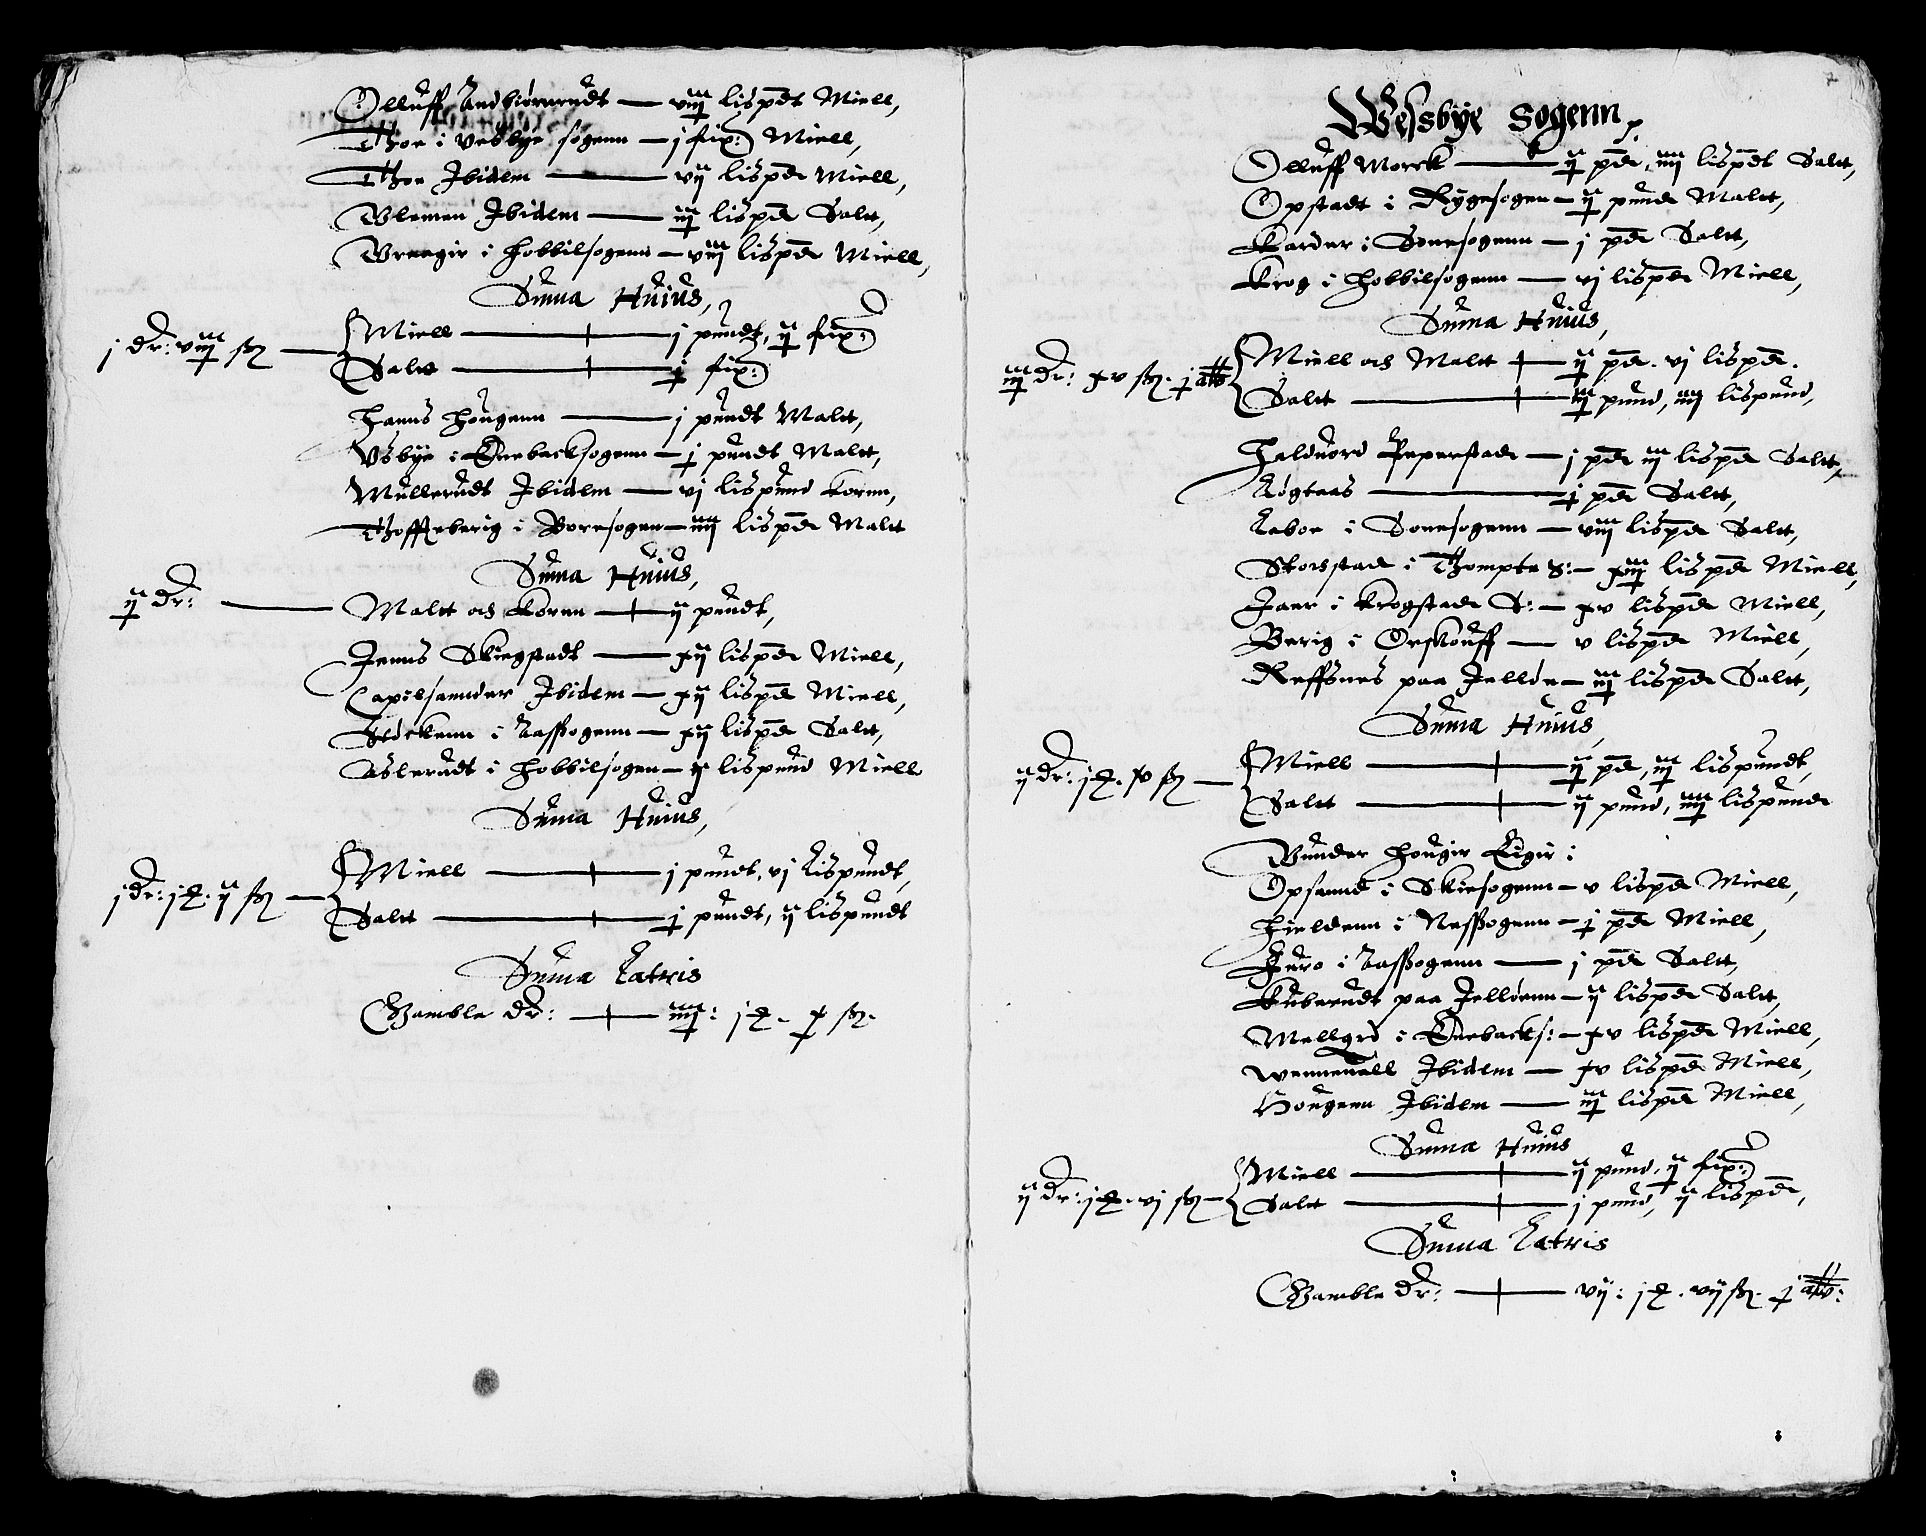 Olluff Andbiørnrudt — viij lispdt Miell,
Thoe i Vesbye sogenn — j fix: Miell,
Thoe Ibidem — vij lispd Miell,
Vlemen Ibidem — iij lispd Salt,
Vrengir i Hobbilsogenn — viij lispd Miell,
Suma Huius,
j dr: viij sk — Miell — j pundt, ij fix:
Saltt — j fix:
Hanns Hougenn — j pundt Maltt,
Vsbye i Enebacksogenn — j pundt Maltt,
Mullerudt Ibidem — vj lispund Kornn,
Thoffteberig i Boresogen — iiij lispd Maltt
Suma Huius,
ij dr: — Maltt och Kornn — ij pundt,
Jenns Skiegstadt — xij lispd Miell,
Capelsannder Ibidem — xij lispd Miell,
Stockenn i Aassogenn — xij lispd Saltt,
Aslerudt i Hobbilsogen — x lispund Miell
Suma Huius,
j dr: j £. ij sk — Miell — j pundt, vj Lispundt,
Saltt — j pundt, ij lispundt
Suma Latris
Gamble dr: — iiij: j £. x sk.
Wessbye Sogenn
Olluff Morck — ij pd, iiij lispdt Saltt,
Opstadt i Rygesogen — ij pund Maltt,
Karder i Sonesogenn — j pd Saltt,
Krog i Hobbilsogenn — vj lispd Miell,
Suma Huius,
iij dr: xv sk. j alb — Miell och Maltt — ij pd. vj lispd.
Saltt — iij pund, iiij lispund,
Haluord Peperstad — j pd iij lispd Saltt,
Løgtaas — j pd Saltt,
Laboe i Sonesogenn — viij lispd Saltt,
Storstad i Thompte S: — xiij lispd Miell,
Jaer i Krogstad S: — xv lispd Miell,
Berig i Orskouff — v lispd Miell,
Reffsnes paa Jellde — iij lispd Saltt,
Suma Huius,
ij dr: j £. xv sk — Miell — ij pd, iij lispundt,
Saltt — ij pund, iiij lispund
Vnnder Hougir Ligir:
Opsannd i Skiesogenn — v lispd Miell,
Hieldenn i Nessogenn — j pd Miell,
Furo i Aassogenn — j pd Saltt,
Kuberudt paa Jelloenn — ij lispd Saltt,
Mellgrd i Enebacks: — xv lispd Miell,
Wenneuall Ibidem — xv lispd Miell,
Hougenn Ibidem — iij lispd Miell,
Suma Huius
ij dr: j £. vj sk — Miell — ij pund, ij fix:
Saltt — j pund, ij lispd,
Suma Latris
Gamble dr: — vij: j £. vij sk. j alb: